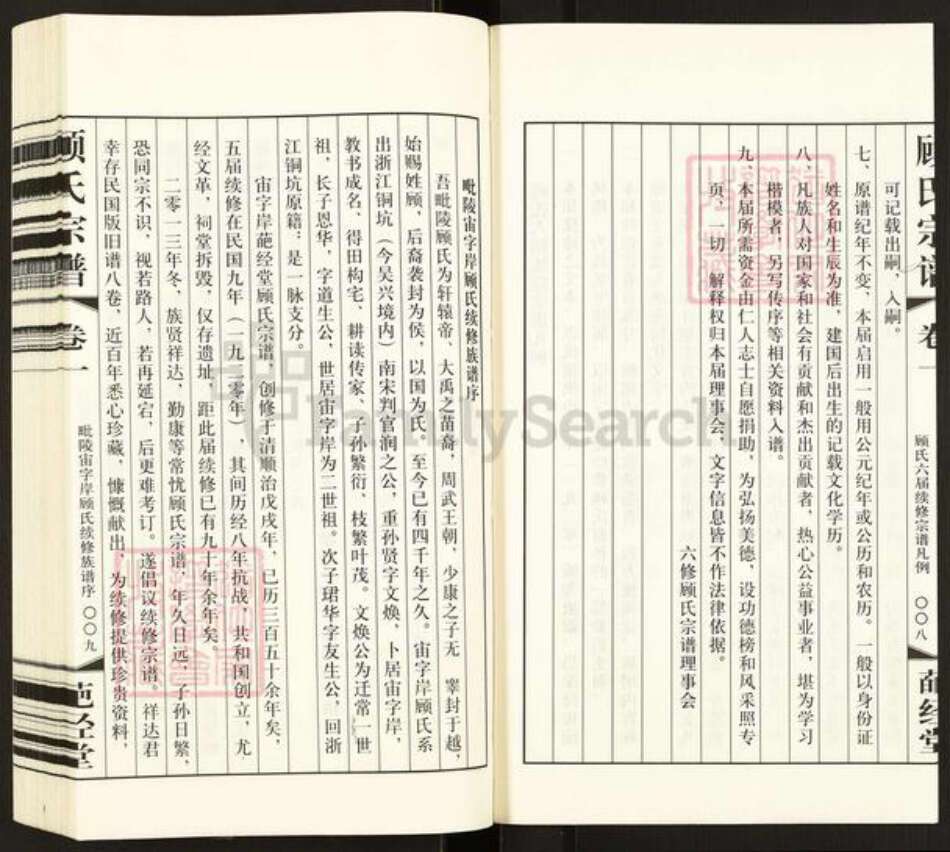 顾氏宗谱
卷一
顾氏六届续修宗谱凡例
〇〇八
葩经堂
可记载出嗣，入嗣。
七、原谱纪年不变，本届启用一般用公元纪年或公历和农历。一般以身份证
姓名和生辰为准，建国后出生的记载文化学历。
八、凡族人对国家和社会有贡献和杰出贡献者，热心公益事业者，堪为学习
楷模者，另写传序等相关资料入谱。
九、本届所需资金由仁人志士自愿捐助，为弘扬美德，设功德榜和风采照专
页，一切 解释权归本届理事会，文字信息皆不作法律依据。
六修顾氏宗谱理事会
毗陵宙字岸顾氏续修族谱序
吾毗陵顾氏为轩辕帝、大禹之苗裔，周武王朝，少康之子无 睾封于越，
始赐姓顾，后裔袭封为侯，以国为氏。至今已有四千年之久。宙字岸顾氏系
出浙江铜坑（今吴兴境内）南宋判官润之公，重孙贤字文焕，卜居宙字岸，
教书成名，得田构宅，耕读传家，子孙繁衍，枝繁叶茂。文焕公为迁常一世
祖，长子恩华，字道生公，世居宙字岸为二世祖。次子珺华字友生公，回浙
江铜坑原籍：是一脉支分。
宙字岸葩经堂顾氏宗谱，创修于清顺治戊戌年，已历三百五十余年矣，
五届续修在民国九年（一九二零年），其间历经八年抗战，共和国创立，尤
经文革，祠堂拆毁，仅存遗址，距此届续修已有九十年余年矣。
二零一三年冬，族贤祥达，勤康等常忧顾氏宗谱，年久日远，子孙日繁，
恐同宗不识，视若路人，若再延宕，后更难考订。遂倡议续修宗谱。祥达君
幸存民国版旧谱八卷，近百年悉心珍藏，慷慨献出，为续修提供珍贵资料，
顾氏宗谱
卷一
毗陵宙字岸顾氏续修族谱序
〇〇九
葩经堂
FamilySearch